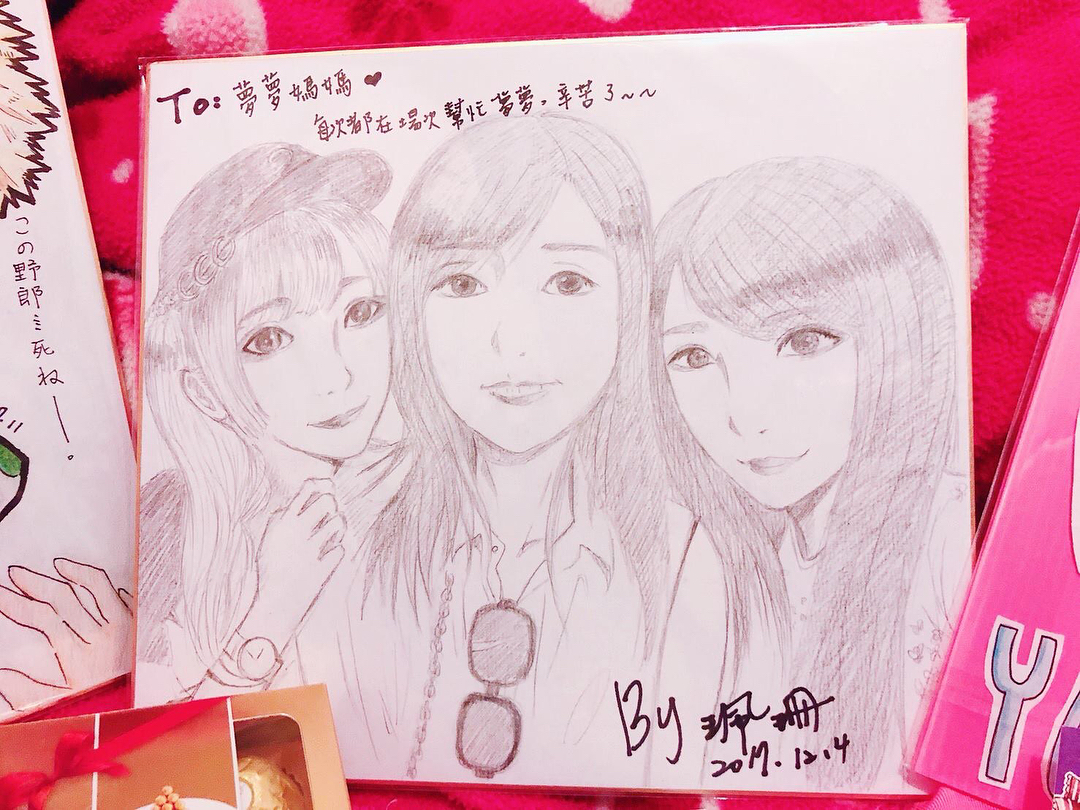 To: 夢夢媽媽 ♥
每次都在場次幫忙夢夢。辛苦了~~
この野郎ミ死ねー。
By 珮珊
2017.12.4
Y